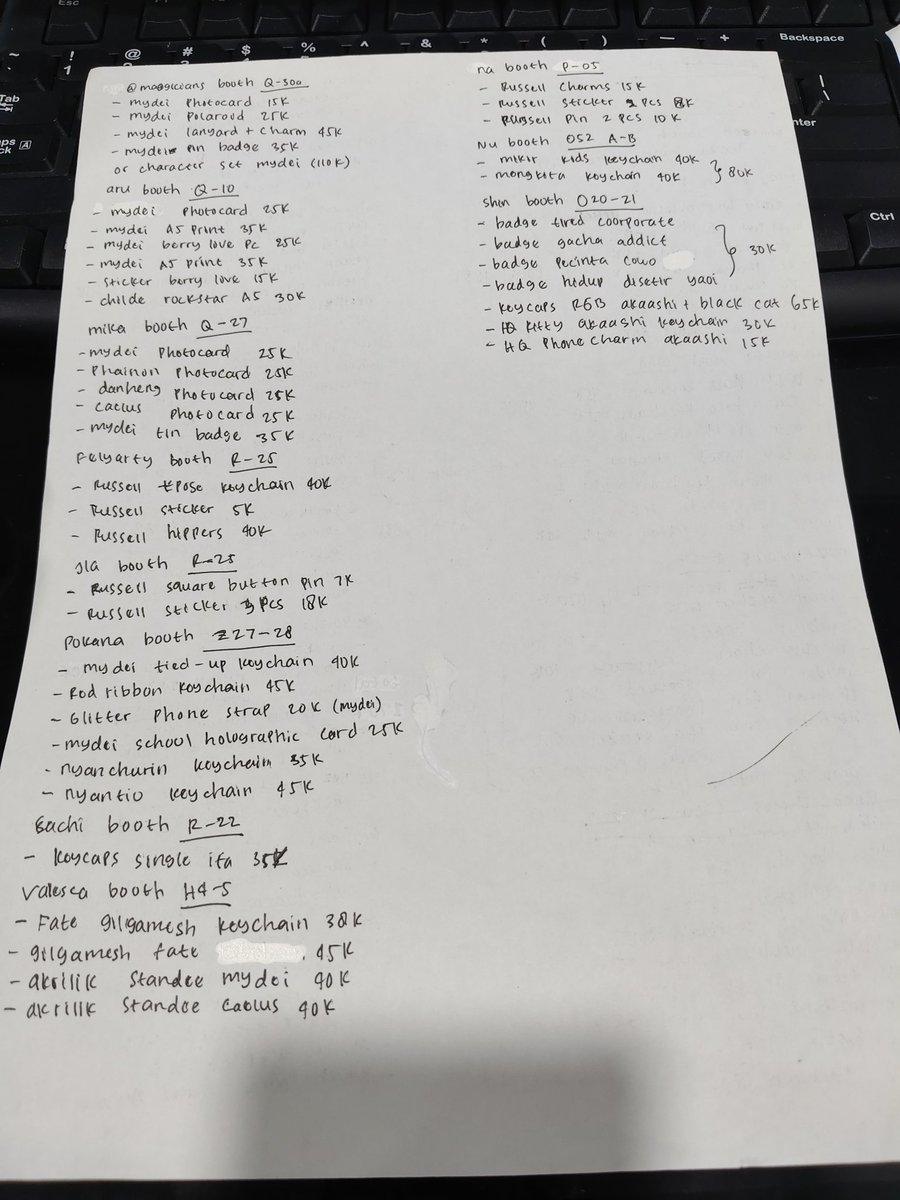 @magicians booth Q-30a
- mydei Photocard 15K
- mydei Polaroid 25K
- mydei lanyard + charm 45K
- mydei pin badge 35K
or character set mydei (110K)
aru booth Q-10
- mydei Photocard 25K
- mydei A5 Print 35K
- mydei berry love Pc 25K
- mydei A5 print 35K
- sticker berry love 15K
- childe rockstar A5 30K
mika booth Q-27
- mydei Photocard 25K
- Phainon Photocard 25K
- danheng Photocard 25K
- caelus Photocard 25K
- mydei tin badge 35K
Felyarty booth R-25
- Russell tpose keychain 40K
- Russell sticker 5K
- Russell hippers 40K
booth R-25
- Russell square button pin 7K
- Russell sticker 3 Pcs 18K
Pokana booth Z27-28
- mydei tied-up keychain 40K
- Rod ribbon keychain 45K
- Glitter Phone strap 20K (mydei)
- mydei school holographic card 25K
- nyanchurin keychain 35K
- nyantiu keychain 45K
Sachi booth R-22
- keycaps single ifa 35K
Valesca booth H4-5
- Fate gilgamesh keychain 38K
- gilgamesh fate 45K
- akrilik Standee mydei 40K
- akrilik Standee Caelus 40K
na booth P-05
- Russell Charms 15K
- Russell Sticker 2 Pcs 8K
- Russell Pin 2 Pcs 10K
Nu booth O52 A-B
- mikir kids keychain 40K
- mongkita keychain 40K } 80K
shin booth O20-21
- badge tired coorporate
- badge gacha addict
- badge pecinta cowo } 30K
- badge hidup disetir yaoi
- keycaps RGB akaashi + black cat 65K
- HQ kitty akaashi keychain 30K
- HQ Phone charm akaashi 15K
Esc
Tab
Caps
Backspace
Enter
Ctrl